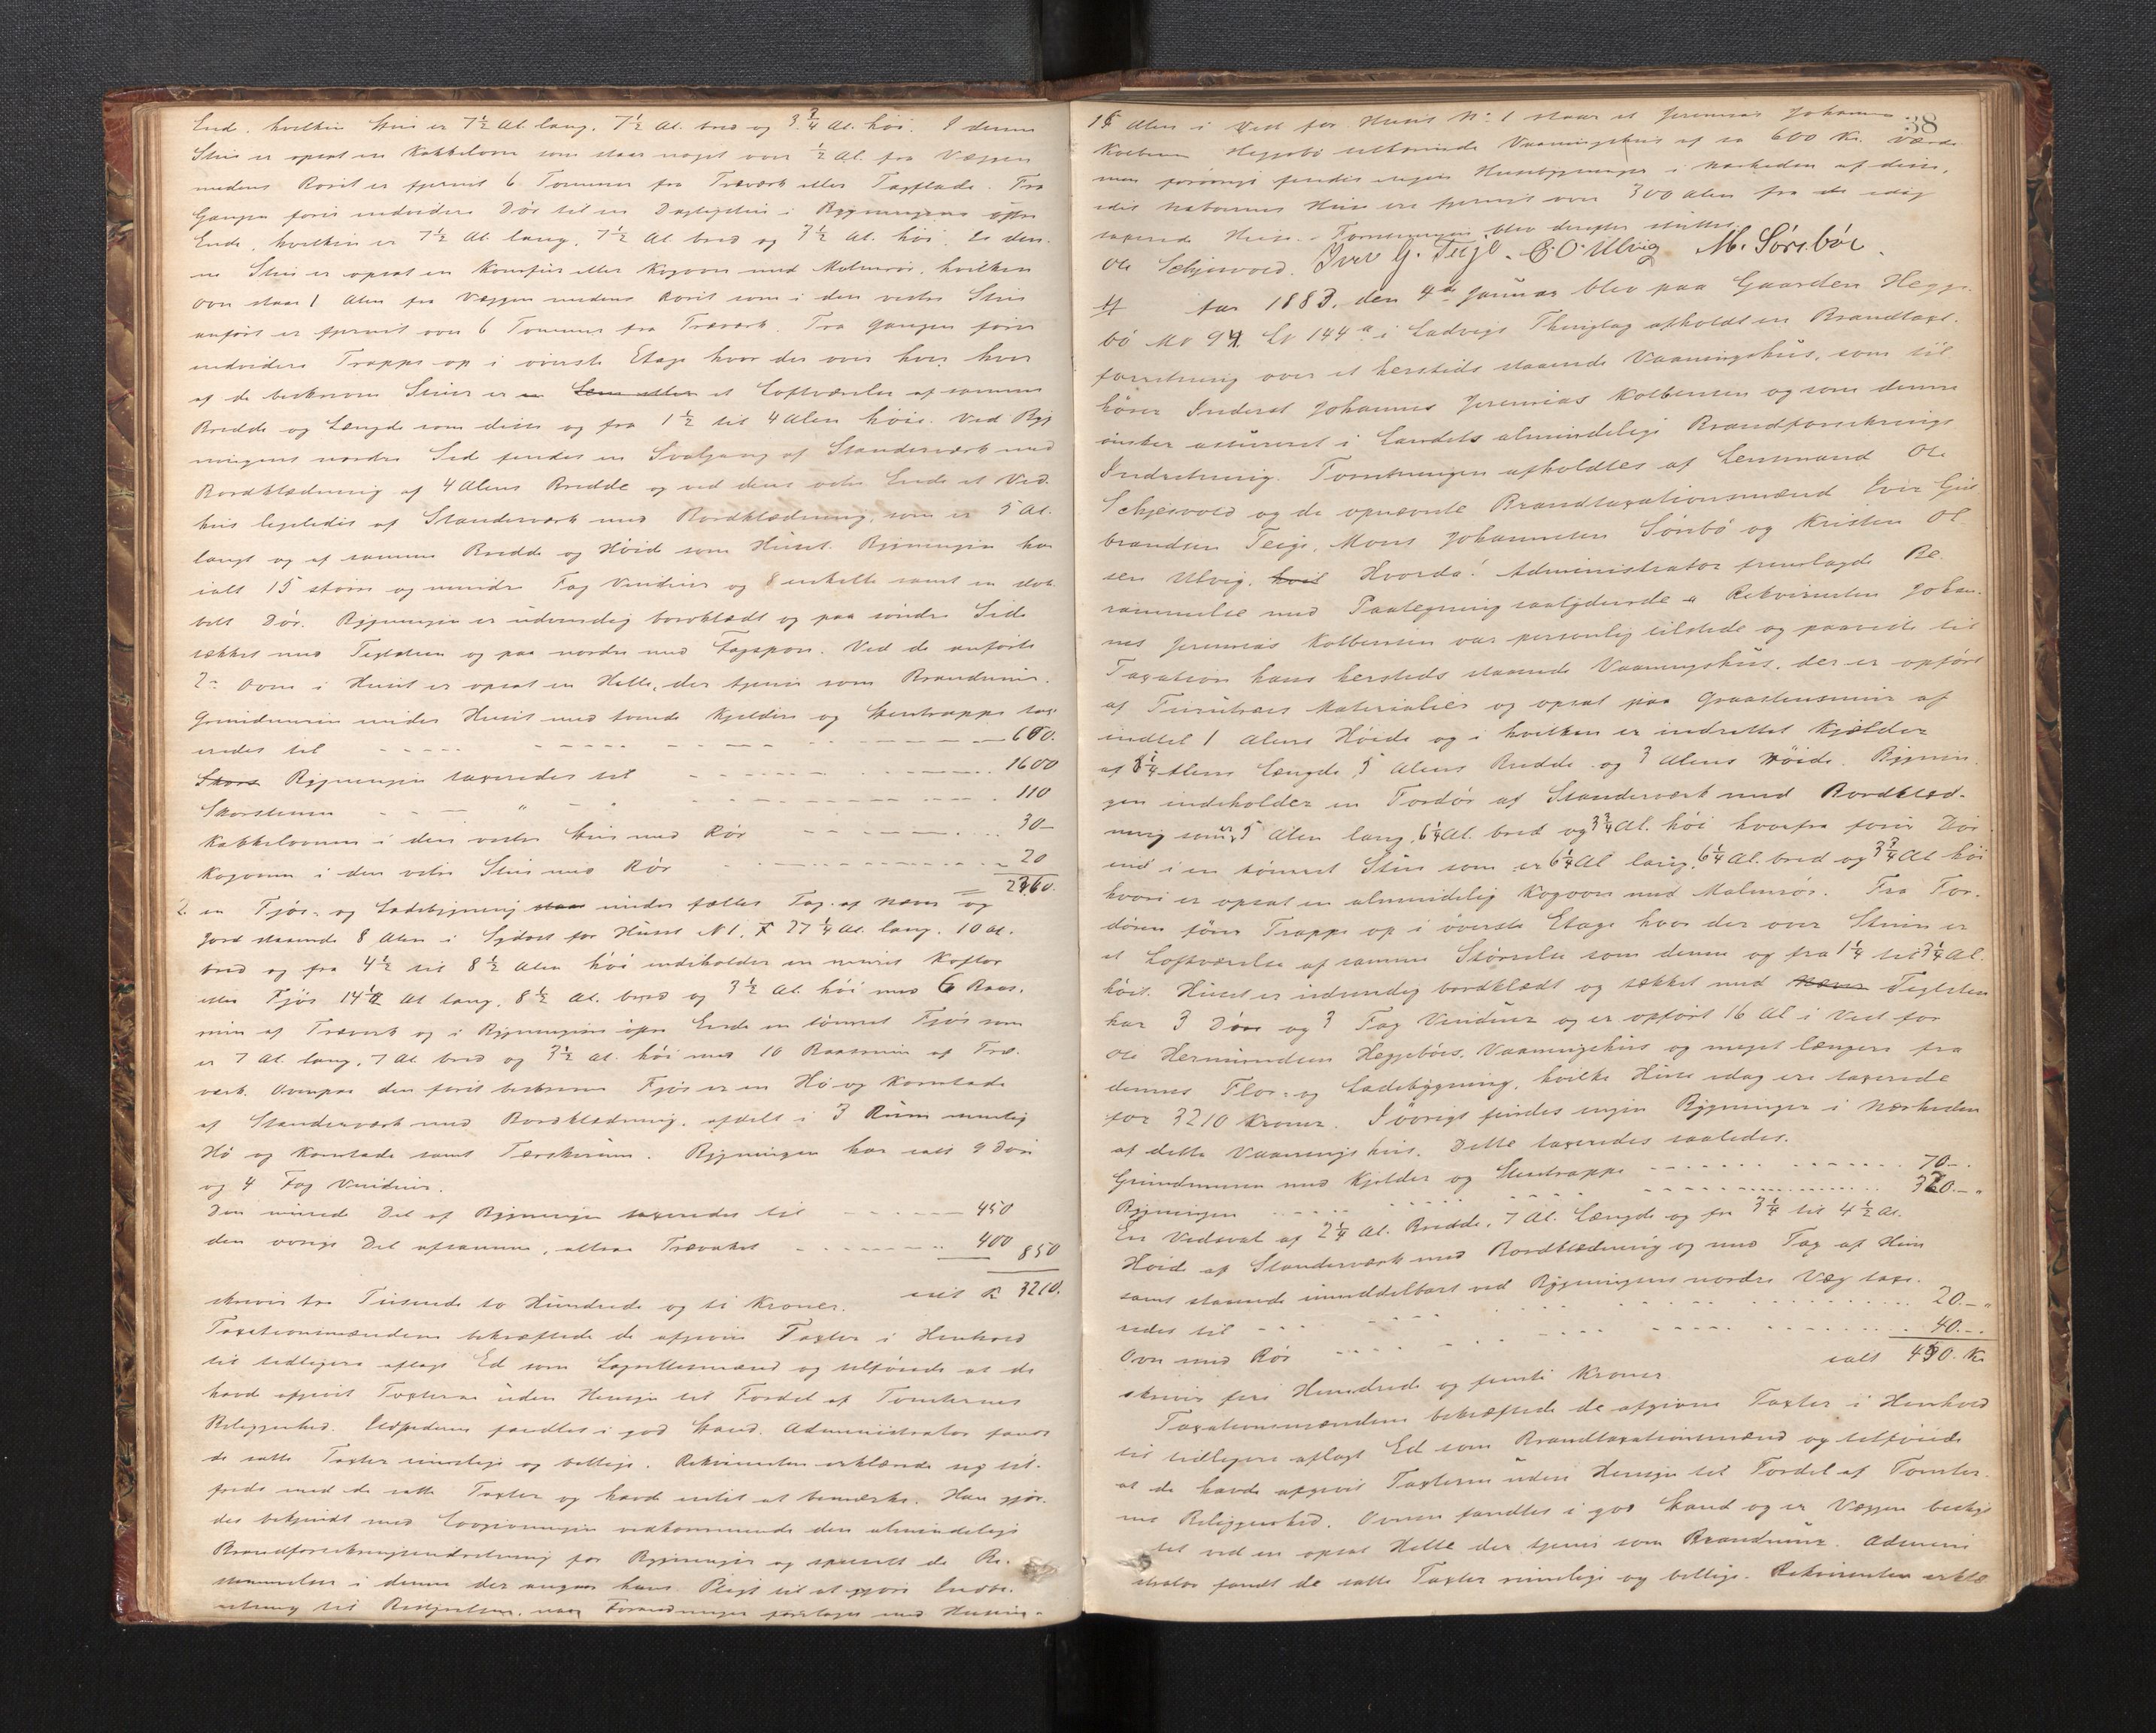 End. hvilken Stue er 7½ Al. lang, 7½ Al. bred og 3¾ Al. höi. I denne
Stue er opsat en Kakkelovn som staar noget over ½ Al. fra Væggen
medens Röret er fjernet 6 Tommer fra Træværk eller Tagflade. Fra
Gangen förer endvidere Dör til en Dagligstue i Bygningens östre
Ende, hvilken er 7½ Al. lang, 7½ Al. bred og 3½ Al. höi. I den-
ne Stue er opsat en Komfur eller Kogovn med Malmrör, hvilken
Ovn staar 1 Alen fra Væggen medens Röret som i den vestre Stue
anfört er fjernet over 6 Tommer fra Træværk. Fra Gangen förer
endvidere Trappe op i överste Etage hvor der over hver
af de beskrevne Stuer er et Loftværelse af samme
Bredde og Længde som disse og fra 1½ til 4 Alen höie. Ved Byg
ningens nordre Side findes en Svalgang af Standerværk med
Bordklædning af 4 Alens Bredde og ved dens vestre Ende et Ved-
hus ligeledes af Standerværk med Bordklædning, som er 5 Al.
langt og af samme Bredde og Höide som Huset. Bygningen har
ialt 15 större og mindre Fag Vinduer og 8 enkelte samt en dob-
belt Dör. Bygningen er udvendig bordklædt og paa söndre Side
tækket med Teglsten og paa nordre med Tagspon. Ved de anförte
2de Ovne i Huset er opsat en Helle, der tjener som Brandmur.
Grundmuren under Huset med tvende Kjeldere og Stentrappe tax-
eredes til - - - 600.
Bygningen taxeredes til - - - 1600
Skorstenen - " - 110
Kakkelovnen i den vestre Stue med Rör - - - 30 -
Kogovnen i den östre Stue med Rör - - - 20
= 2360.
2. en Fjös- og Ladebygning under fælles Tag af Næver og
Jord staaende 8 Alen i Sydost for Huset N 1, 27¼ Al. lang, 10 Al.
bred og fra 4½ til 8½ Alen höi indeholder en muret
eller Fjös 14½ Al lang, 8½ Al. bred og 3½ Al. höi med 6 Baas-
rum af Træværk og i Bygningens östre Ende en tömret Fjös som
er 7 Al. lang, 7 Al bred og 3½ Al. höi med 10 Baasrum af Træ-
værk. Ovenpaa den först beskrevne Fjös er en Hö og Kornlade
af Standerværk med Bordklædning, afdelt i 3 Rum nemlig
Hö og Kornlade samt Tærskerum. Bygningen har ialt 9 Döre
og 4 Fag Vinduer.
Den murede Del af Bygningen taxeredes til - - - 450
den övrige Del afsamme, altsaa Træværket - - - 400 850
ialt Kr 3210.
skriver tre Tusinde to Hundrede og ti Kroner.
Taxationsmændene bekræftede de afgivne Taxter i Henhold
til tidligere aflagt Ed som Lagrettesmænd og tilföiede at de
havde afgivet Taxterne uden Hensyn til Fordel af Tomternes
Beliggenhed. Ildstederne fandtes i god Stand. Administrator fandt
de satte Taxter rimelige og billige. Rekvirenten erklærede sig til-
freds med de satte Taxter og havde intet at bemærke. Han gjör-
des bekjendt med Lovgivningen vedkommende den almindelige
Brandforsikringsindretning for Bygninger og specielt de Be-
stemmelser i denne der angaar hans Pligt til at gjöre Indbe-
retning til Bestyrelsen, naar Forandringer foretages med Husene.
38
16 Alen i Vest for Huset No 1 staar et Jeremias Johannes
Kolbeins Heggebö tilhörende Vaaningshus af ca 600 Kr. Værdi
men forövrigt findes ingen Husbygninger i Nærheden af disse,
idet Naboernes Huse ere fjernet over 300 Alen fra de idag
taxerede Huse. Forretningen blev derefter sluttet.
Ole Schjesvold. Iver G. Teige. C. O. Ulvig M. Sörsböe.
Aar 1883, den 4de Januar blev paa Gaarden Hegge-
bö M No 94 Lö 144a i Ladvigs Thinglag afholdt en Brandtaxt-
forretning over et hersteds staaende Vaaningshus, som til-
hörer Inderst Johannes Jeremias Kolbensen og som denne
önsker assureret i Landets almindelige Brandforsikrings
Indretning. Forretningen afholdtes af Lensmand Ole
Schjesvold og de opnævnte Brandtaxationsmænd Iver Gul
brandsen Teige, Mons Johannesen Sörsbö og Kristen Ol
sen Ulvig. Hvorda! Administrator fremlagde Be-
rammelse med Paategning saalydende Rekvirenten Johan-
nes Jeremias Kolbensen var personlig tilstede og paaviste til
Taxation hans hersteds staaende Vaaningshus, der er opfört
af Furutræes Materialier og opsat paa Graastensmur af
indtil 1 Alens Höide og i hvilken er indrettet Kjælder
af 8¼ Alens Længde, 5 Alens Bredde og 3 Alens Höide. Bygnin-
gen indeholder en Fordör af Standerværk med Bordklæd-
ning som er 5 Alen lang, 6¼ Al. bred og 3¾ Al. höi hvorfra förer Dör
ind i en tömret Stue som er 6¼ Al lang, 6¼ Al. bred og 3¾ Al höi
hvori er opsat en almindelig Kogovn med Malmrör. Fra For-
dören förer Trappe op i överste Etage hvor der over Stuen er
et Loftværelse af samme Störrelse som denne og fra 1¼ til 3¼ Al.
höit. Huset er udvendig bordklædt og tækket med Teglsten
har 3 Döre og 3 Fag Vinduer og er opfört 16 Al i Vest for
Ole Hermundsen Heggebös Vaaningshus og meget længere fra
dennes Flor- og Ladebygning, hvilke Huse idag ere taxerede
for 3210 Kroner. Iövrigt findes ingen Bygninger i Nærheden
af dette Vaaningshus. Dette taxeredes saaledes.
Grundmuren med Kjelder og Stentrappe - - - 70 -.
Bygningen - - - 320. - "
En Vedsval af 2¼ Al. Bredde, 7 Al. Længde og fra 3¼ til 4½ Al.
Höide af Standerværk med Bordklædning og med Tag af
samt staaende umiddelbart ved Bygningens nordre Væg taxe-
redes til - - - 20. - "
Ovn med Rör - - - 40. -.
ialt 450. Kr
skriver fire Hundrede og femti Kroner
Taxationsmændene bekræftede de afgivne Taxter i Henhold
til tidligere aflagt Ed som Brandtaxationsmænd og tilföiede
at de havde afgivet Taxterne uden Hensyn til Fordel af Tomter-
nes Beliggenhed. Ovnen fandtes i god Stand og er Væggen beskyt
tet ved en opsat Helle der tjener som Brandmur. Admini
strator fandt de satte Taxter rimelige og billige. Rekvirenten erklæ